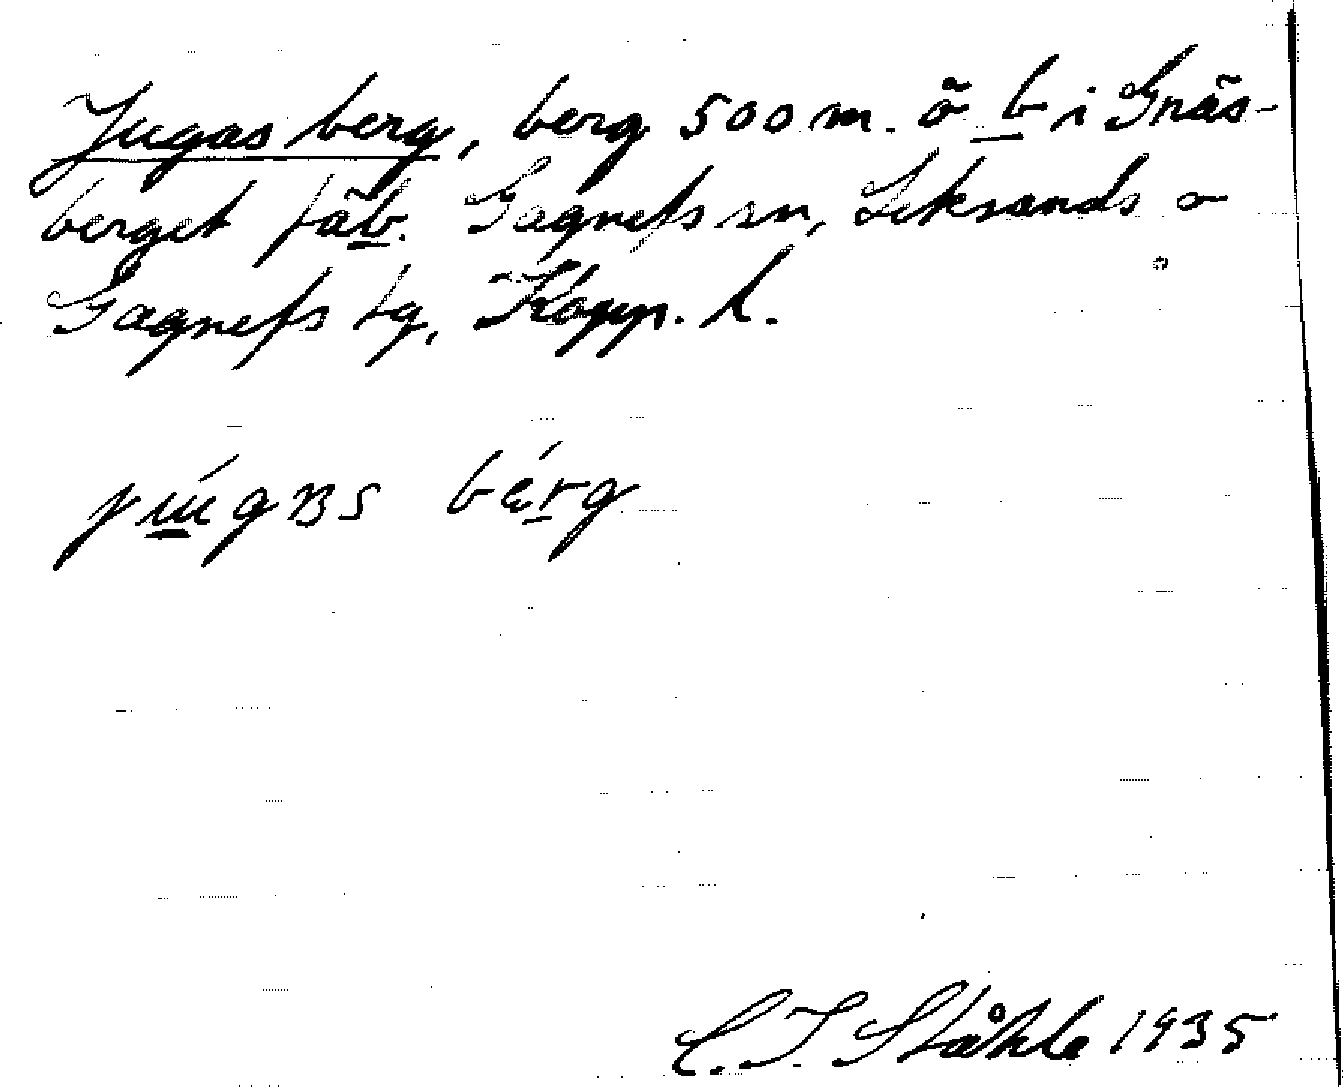 Jugas berg, berg 500 m. ö b i Gräs-
berget fäb. Gagnefs sn, Leksands o
Gagnefs tg, Kopp. l.
C. I. Ståhle 1935